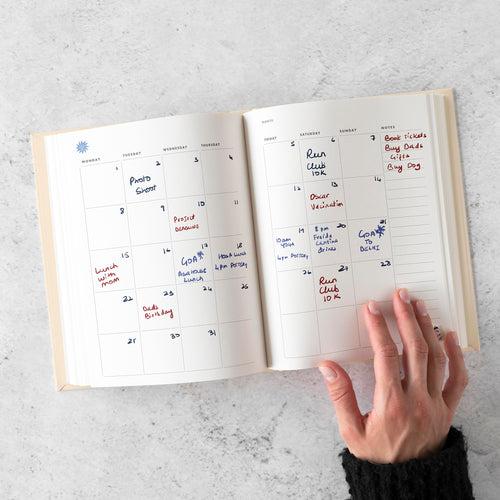 MONDAY TUESDAY WEDNESDAY THURSDAY
1 2 3 4
Photo
Shoot
8 9 10 11
Project
DEADLINE
15 16 17 18
Lunch
with
mom
GOA
LUNCH
4pm Pottery
22 23 24 25
Dad's
Birthday
29 30 31
SATURDAY SUNDAY NOTES
5 6 7
Run
Club
10K
Book tickets
Buy Dad's
Gifts
Buy Dog
12 13 14
Oscar
Vaccination
19 20 21
10am
Yoga
4pm Pottery
8pm
Frida
Cantina
drinks
GOA
TO
DELHI
26 28
Run
Club
10K